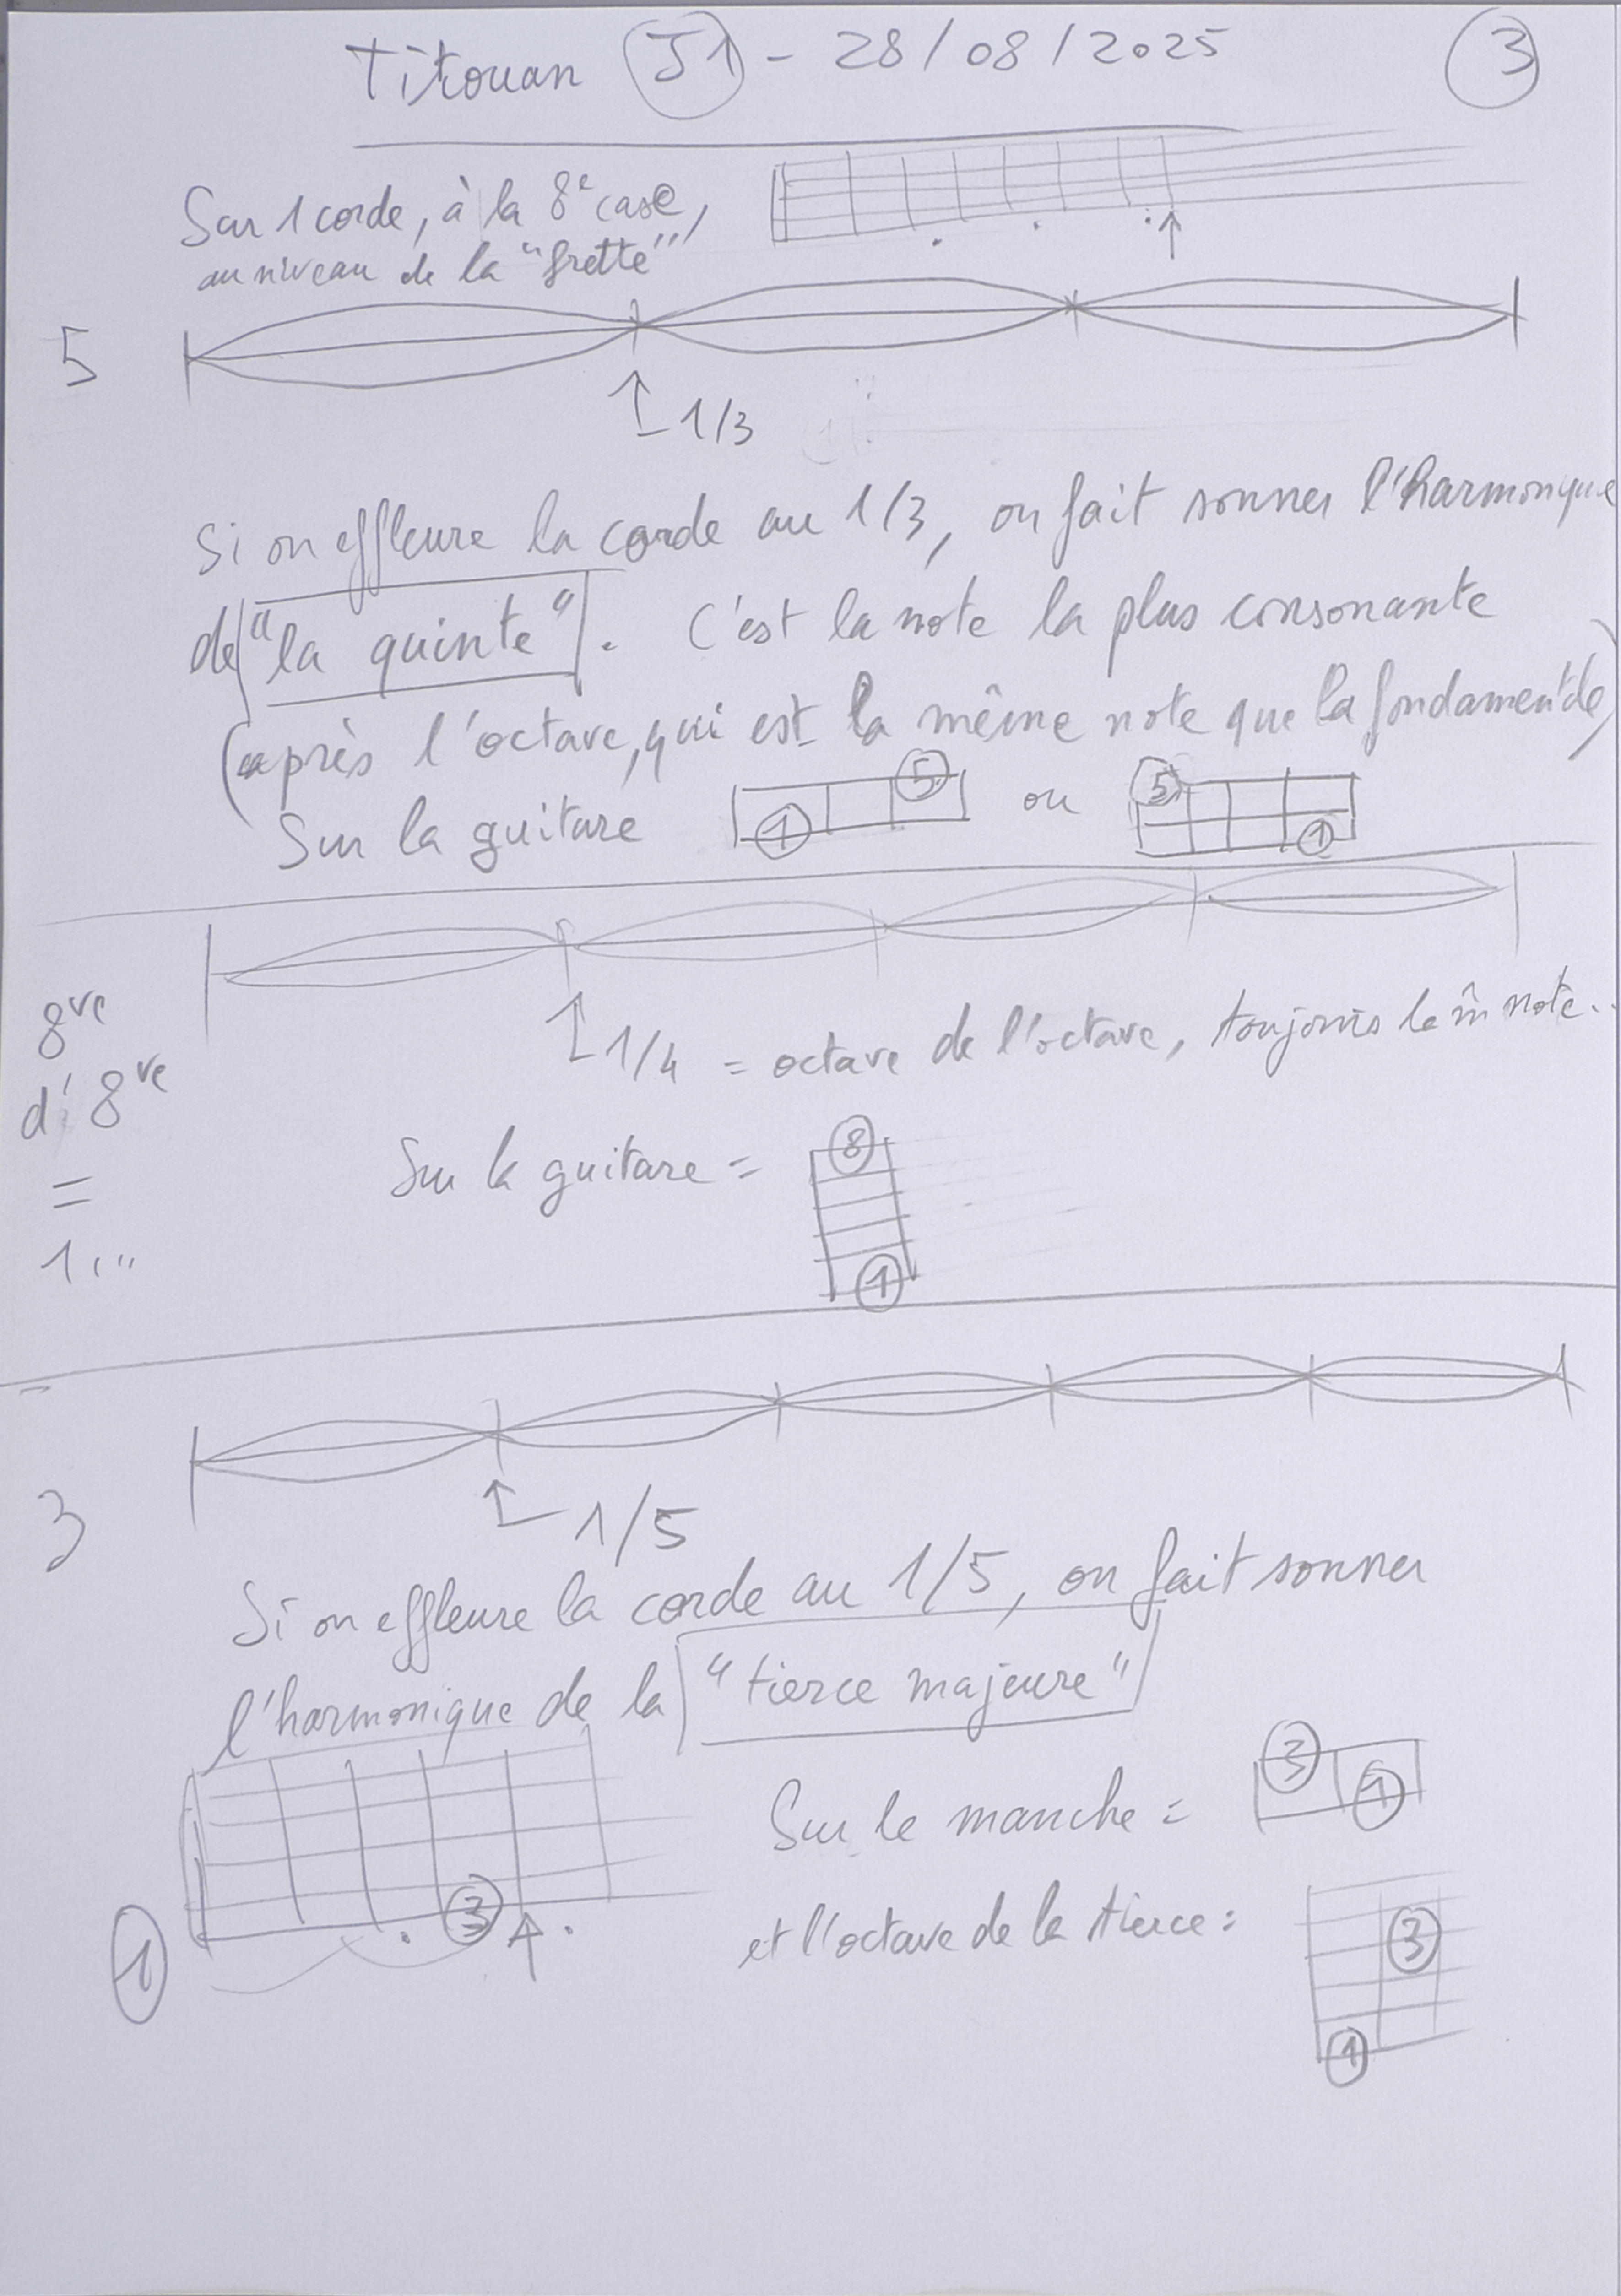 Titouan J1 - 28/08/2025 3
Sur 1 corde, à la 8e case,
au niveau de la "frette"
5
1/3
Si on effleure la corde au 1/3, on fait sonner l'harmonique
de "la quinte". C'est la note la plus consonante
(après l'octave, qui est la même note que la fondamentale)
Sur la guitare 1 5 ou 5 1
8ve
d'8ve
=
1...
1/4 = octave de l'octave, toujours la m̂ note..
Sur la guitare = 8
1
3
1/5
Si on effleure la corde au 1/5, on fait sonner
l'harmonique de la "tierce majeure"
1 3
Sur le manche = 3 1
et l'octave de la tierce = 3
1